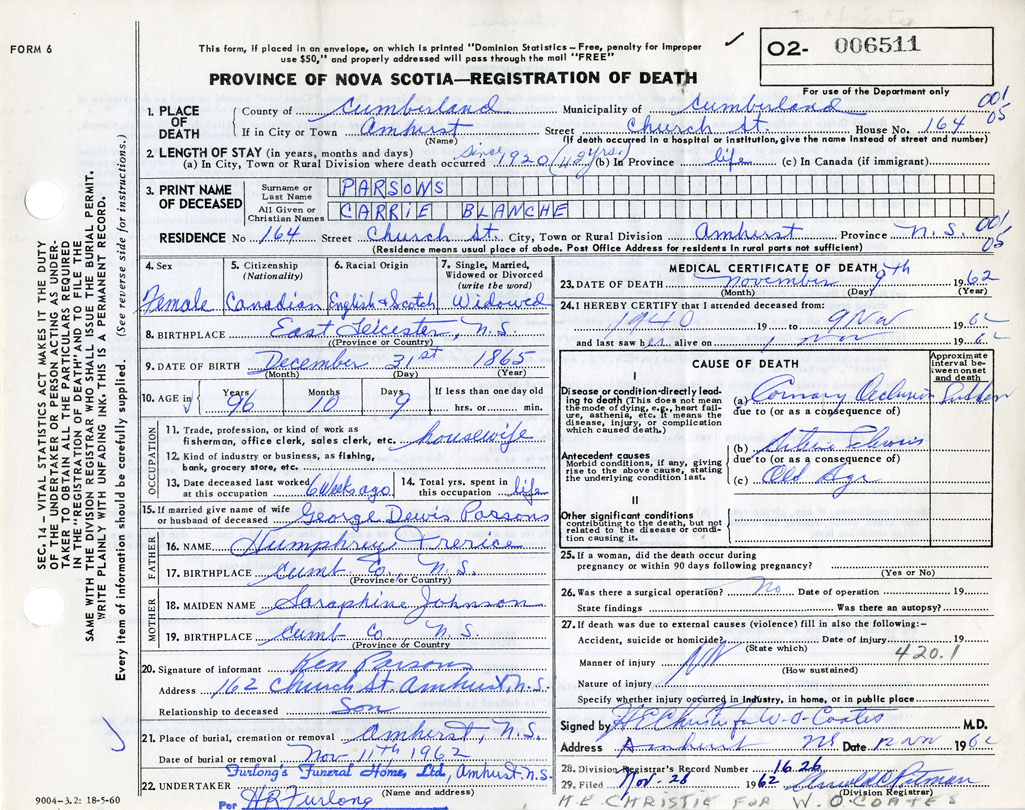 FORM 6
This form, if placed in an envelope, on which is printed "Dominion Statistics – Free, penalty for improper
use $50," and properly addressed will pass through the mail "FREE"
O2- 006511
PROVINCE OF NOVA SCOTIA—REGISTRATION OF DEATH
For use of the Department only
SEC. 14 – VITAL STATISTICS ACT MAKES IT THE DUTY
OF THE UNDERTAKER OR PERSON ACTING AS UNDER-
TAKER TO OBTAIN ALL THE PARTICULARS REQUIRED
IN THE "REGISTRATION OF DEATH" AND TO FILE THE
SAME WITH THE DIVISION REGISTRAR WHO SHALL ISSUE THE BURIAL PERMIT.
WRITE PLAINLY WITH UNFADING INK. THIS IS A PERMANENT RECORD.
Every item of information should be carefully supplied. (See reverse side for instructions.)
1. PLACE OF DEATH County of Cumberland Municipality of Cumberland 001/05
If in City or Town Amherst Street Church St. House No. 164
(Name) (If death occurred in a hospital or institution, give the name instead of street and number)
2. LENGTH OF STAY (in years, months and days)
(a) In City, Town or Rural Division where death occurred since 1920 (42 yrs) (b) In Province life (c) In Canada (if immigrant)
3. PRINT NAME OF DECEASED Surname or Last Name PARSONS
All Given or Christian Names CARRIE BLANCHE
RESIDENCE No 164 Street Church St. City, Town or Rural Division Amherst Province N.S. 001/05
(Residence means usual place of abode. Post Office Address for residents in rural parts not sufficient)
4. Sex Female
5. Citizenship (Nationality) Canadian
6. Racial Origin English & Scotch
7. Single, Married, Widowed or Divorced (write the word) Widowed
8. BIRTHPLACE East Leicester, N.S.
(Province or Country)
9. DATE OF BIRTH December 31st 1865
(Month) (Day) (Year)
10. AGE in Years 96 Months 10 Days 9 If less than one day old hrs. or min.
OCCUPATION
11. Trade, profession, or kind of work as
fisherman, office clerk, sales clerk, etc. housewife
12. Kind of industry or business, as fishing,
bank, grocery store, etc.
13. Date deceased last worked at this occupation 6 weeks ago 14. Total yrs. spent in this occupation life
15. If married give name of wife
or husband of deceased George Dewis Parsons
FATHER
16. NAME Humphrey Trerice
17. BIRTHPLACE Cumb Co, N.S.
(Province or Country)
MOTHER
18. MAIDEN NAME Saraphine Johnson
19. BIRTHPLACE Cumb Co, N.S.
(Province or Country)
20. Signature of informant Ken Parsons
Address 162 Church St. Amherst, N.S.
Relationship to deceased Son
21. Place of burial, cremation or removal Amherst, N.S.
Date of burial or removal Nov. 11th 1962
Furlong's Funeral Home, Ltd, Amherst. N.S.
22. UNDERTAKER (Name and address)
Per H R Furlong
9004-3.2: 18-5-60
MEDICAL CERTIFICATE OF DEATH
23. DATE OF DEATH November 9th 1962
(Month) (Day) (Year)
24. I HEREBY CERTIFY that I attended deceased from:
1940 19 to 9 Nov 1962
and last saw her alive on 1 Nov 1962
CAUSE OF DEATH
Approximate interval between onset and death
I
Disease or condition directly lead-
ing to death (This does not mean
the mode of dying, e.g., heart fail-
ure, asthenia, etc. It means the
disease, injury, or complication
which caused death.)
(a) Coronary Occlusion Sudden
due to (or as a consequence of)
Antecedent causes
Morbid conditions, if any, giving
rise to the above cause, stating
the underlying condition last.
(b) Arterio Sclerosis
due to (or as a consequence of)
(c) Old Age
II
Other significant conditions
contributing to the death, but not
related to the disease or condi-
tion causing it.
25. If a woman, did the death occur during
pregnancy or within 90 days following pregnancy?
(Yes or No)
26. Was there a surgical operation? No Date of operation 19
State findings Was there an autopsy?
27. If death was due to external causes (violence) fill in also the following:-
Accident, suicide or homicide? Date of injury 19
(State which) 420.1
Manner of injury
(How sustained)
Nature of injury
Specify whether injury occurred in industry, in home, or in public place
Signed by H E Christie for W. O. Coates M.D.
Address Amherst NS Date 12 Nov 1962
28. Division Registrar's Record Number 1626
29. Filed Nov. 26 1962
(Division Registrar)
H E CHRISTIE FOR W. O. COATES